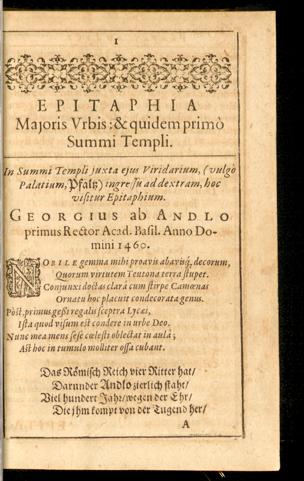 1
EPITAPHIA
Majoris Vrbis: & quidem primò
Summi Templi.
In Summi Templi juxta ejus Viridarium, (vulgò
Palatium, Pfaltz) ingressu ad dextram, hoc
visitur Epitaphium.
GEORGIUS ab ANDLO
primus Rector Acad. Basil. Anno Do-
mini 1460.
NOBILE gemma mihi proavis abavisq; decorum,
Quorum virtutem Teutona terra stupet.
Conjunxi doctas clarâ cum stirpe Camœnas
Ornatu hoc placuit condecorata genus.
Pòst, primus gessi regalis sceptra Lycæi,
Ista quod visum est condere in urbe Deo.
Nunc mea mens sese cœlesti oblectat in aulâ;
Ast hoc in tumulo molliter ossa cubant.
Das Römisch Reich vier Ritter hat/
Darunder Andlo zierlich staht/
Viel hundert Jahr/ wegen der Ehr/
Die jhm kompt von der Tugend her/
A